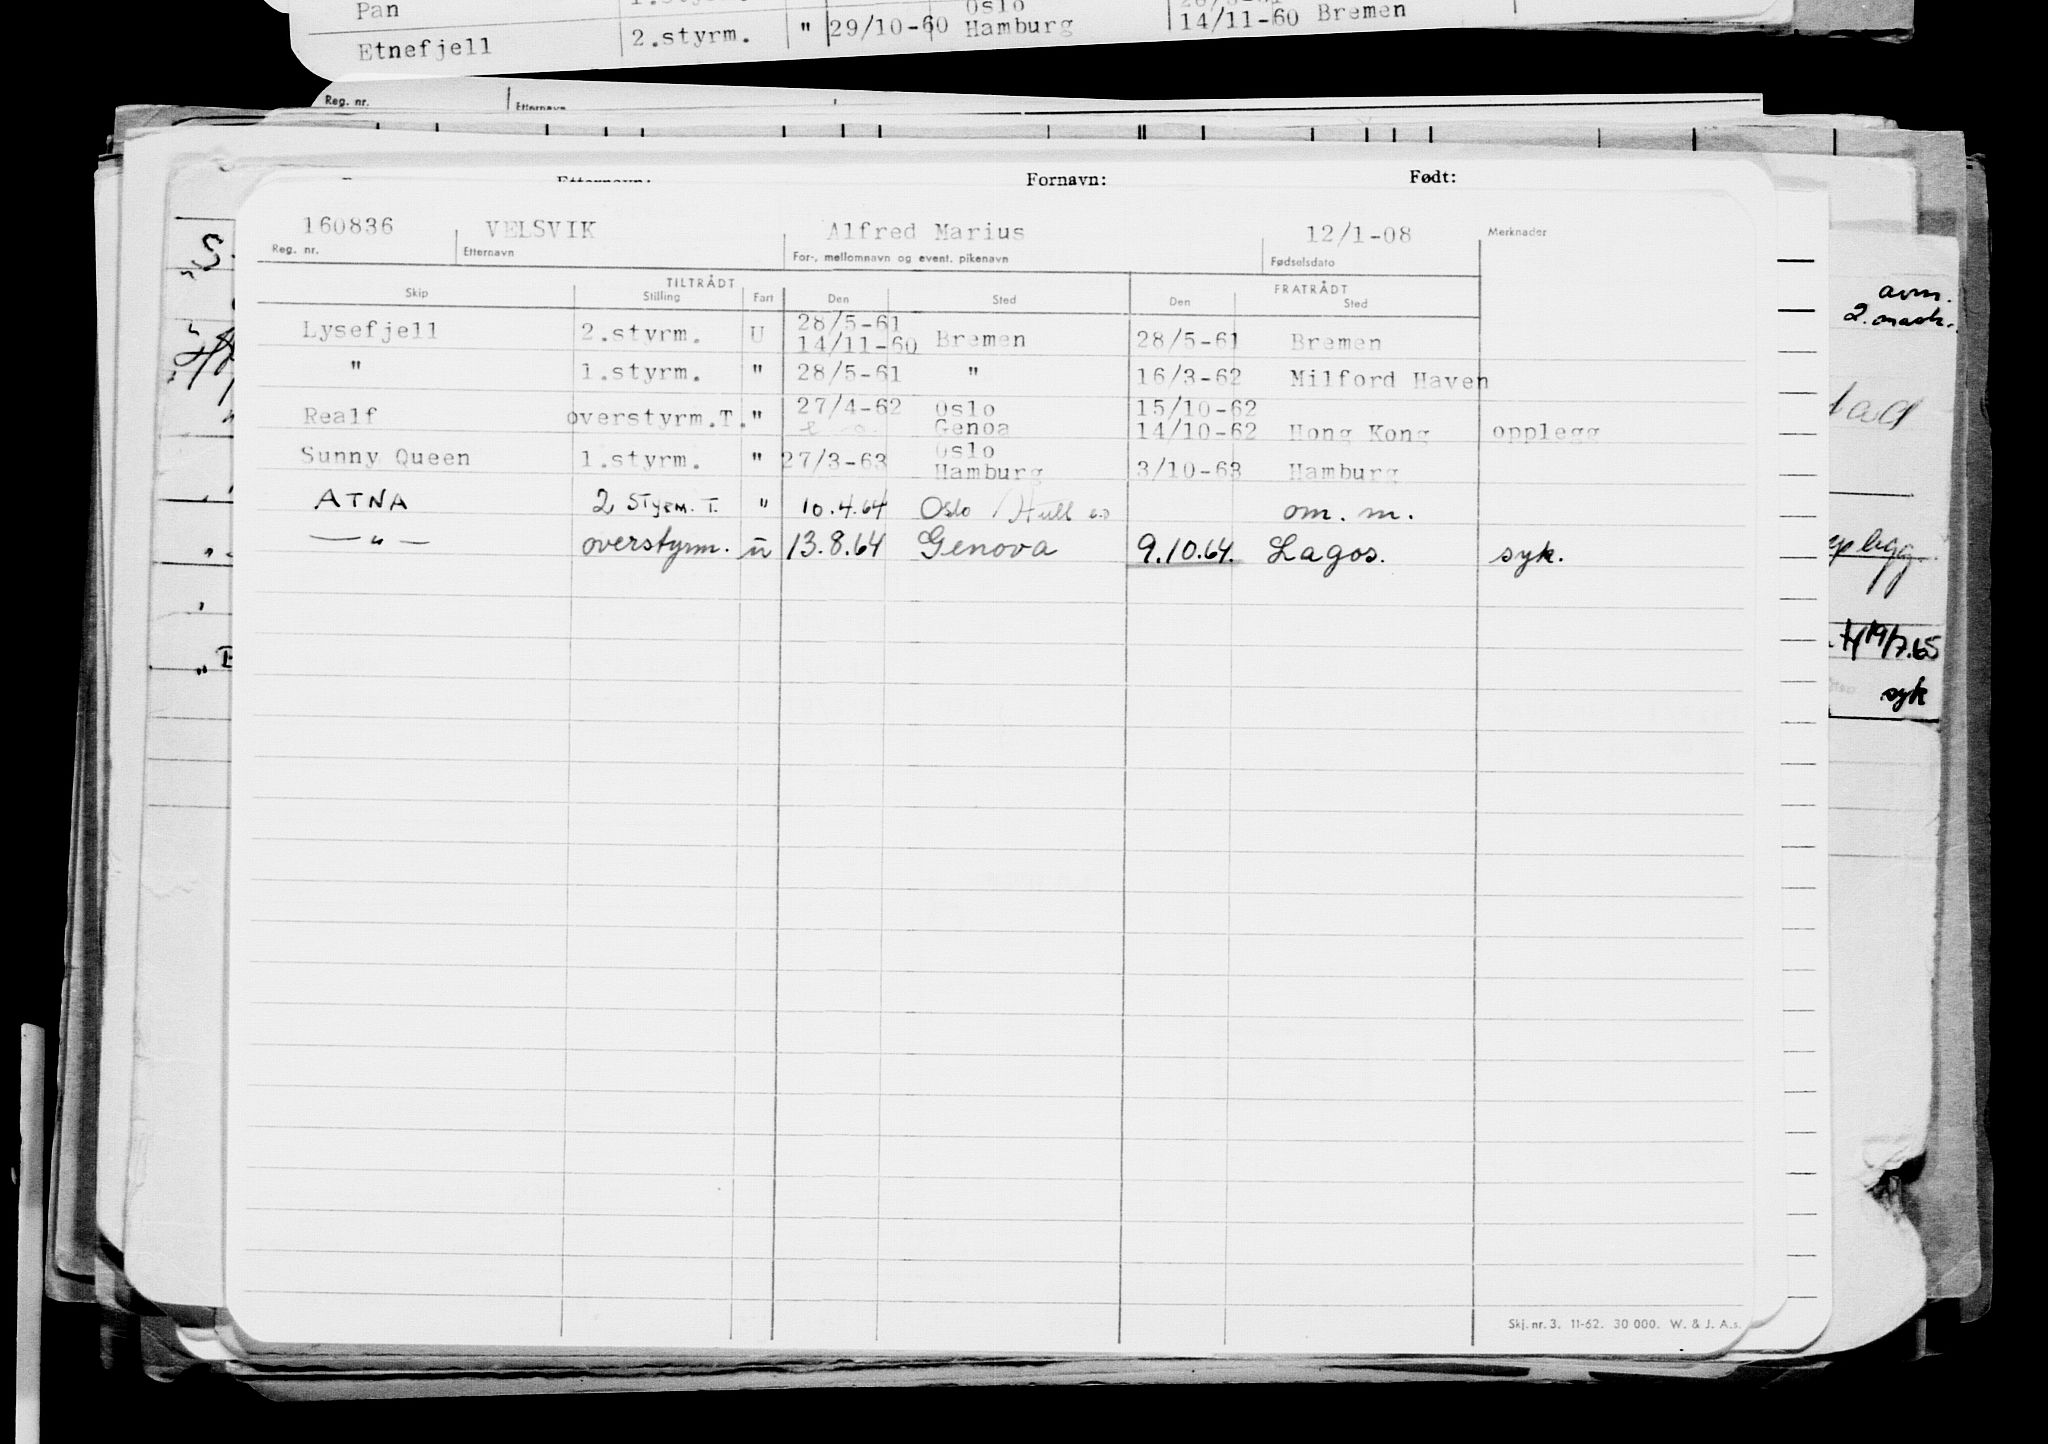 Pan
Oslo
Etnefjell 2.styrm. " 29/10-60 Hamburg 14/11-60 Bremen
Reg. nr. Etternavn
Fornavn: Født:
160836 VELSVIK Alfred Marius 12/1-08 Merknader
Reg. nr. Etternavn For-, mellomnavn og event. pikenavn Fødselsdato
TILTRÅDT FRATRÅDT
Skip Stilling Fart Den Sted Den Sted
28/5-61
Lysefjell 2.styrm. U 14/11-60 Bremen 28/5-61 Bremen
" 1.styrm. " 28/5-61 " 16/3-62 Milford Haven
27/4-62 Oslo 15/10-62
Realf overstyrm.T. " Genoa 14/10-62 Hong Kong opplegg
Oslo
Sunny Queen 1.styrm. " 27/3-63 Hamburg 3/10-63 Hamburg
ATNA 2 Styrm. T. " 10.4.64 Oslo /Hull om. m.
— " — overstyrm. u 13.8.64 Genova 9.10.64. Lagos. syk.
avm.
2. mask.
19/7.65
syk
Skj. nr. 3. 11-62. 30 000. W. & J. A.s.